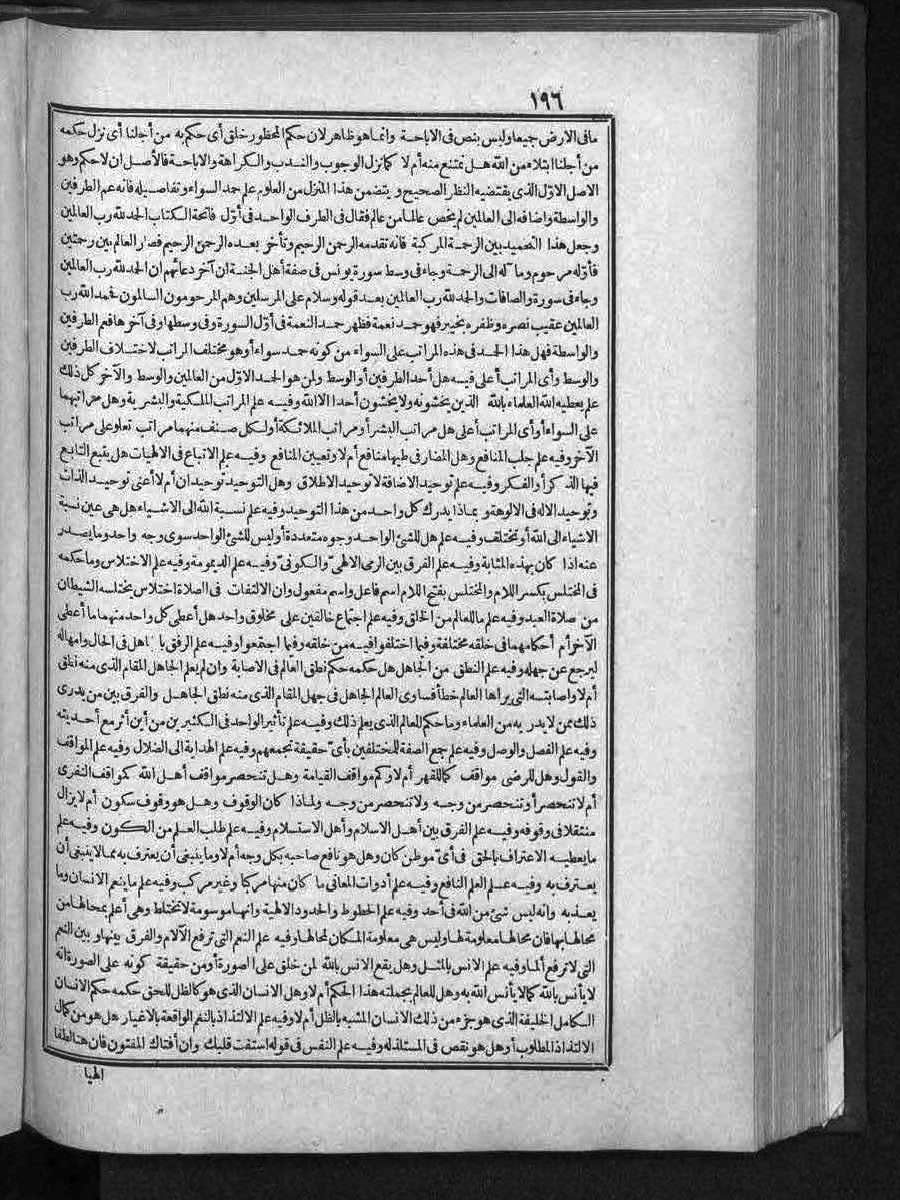 ١٩٦
مافى الارض جميعا وليس بنص فى الاباحة وانما هو ظاهر لان حكم المحظور خلق أى حكم به من أجلنا أى نزل حكمه
من أجلنا ابتلاء من الله هل نمتنع منه أم لا كما نزل الوجوب والندب والكراهة والاباحة فالأصل ان لا حكم وهو
الاصل الاول الذى يقتضيه النظر الصحيح ويتضمن هذا المنزل من العلوم علم حمد السواء وتفاصيله فانه عم الطرفين
والواسطة واضافه الى العالمين لم يخص عالما من عالم فقال فى الطرف الواحد فى أول فاتحة الكتاب الحمد لله رب العالمين
وجعل هذا التحميد بين الرحمة المركبة فانه تقدمه الرحمن الرحيم وتأخر بعده الرحمن الرحيم فصار العالم بين رحمتين
فأوله مرحوم وما له الى الرحمة وجاء فى وسط سورة يونس فى صفة أهل الجنة ان آخر دعائهم ان الحمد لله رب العالمين
وجاء فى سورة والصافات والحمد لله رب العالمين بعد قوله وسلام على المرسلين وهم المرحومون السالمون فحمد الله رب
العالمين عقيب نصره وظفره بخيبر فهو حمد نعمة فظهر حمد النعمة فى أول السورة وفى وسطها وفى آخرها فعم الطرفين
والواسطة فهل هذا الحمد فى هذه المراتب على السواء من كونه حمد سواء أو هو مختلف المراتب لاختلاف الطرفين
والوسط وأى المراتب أعلى فيه هل أحد الطرفين أو الوسط ولمن هو الحمد الاول من العالمين والوسط والآخر كل ذلك
علم يعطيه الله العلماء بالله الذين يخشونه ولا يخشون أحدا الا الله وفيه علم المراتب الملكية والبشرية وهل مراتبهما
على السواء أو أى المراتب أعلى هل مراتب البشر أو مراتب الملائكة أو لكل صنف منهما مراتب تعلو على مراتب
الآخر وفيه علم جلب المنافع وهل المضار فى طيها منافع أم لا وتعيين المنافع وفيه علم الاتباع فى الالهيات هل يتبع التابع
فيها الذكر أو الفكر وفيه علم توحيد الاضافة لا توحيد الاطلاق وهل التوحيد توحيدان أم لا أعنى توحيد الذات
وتوحيد الاله فى الالوهة وبماذا يدرك كل واحد من هذا التوحيد وفيه علم نسبة الله الى الاشياء هل هى عين نسبة
الاشياء الى الله أو تختلف وفيه علم هل للشئ الواحد وجوه متعددة أو ليس للشئ الواحد سوى وجه واحد وما يصدر
عنه اذا كان بهذه المثابة وفيه علم الفرق بين الرمى الالهىّ والكونىّ وفيه علم الديمومة وفيه علم الاختلاس وما حكمه
فى المختلس بكسر اللام والمختلس بفتح اللام اسم فاعل واسم مفعول وان الالتفات فى الصلاة اختلاس يختلسه الشيطان
من صلاة العبد وفيه علم ما للعالم من الخلق وفيه علم اجتماع خالقين على مخلوق واحد هل أعطى كل واحد منهما ما أعطى
الآخر أم أحكامهما فى خلقه مختلفة وفيما اختلفوا فيه من خلقه وفيما اجتمعوا وفيه علم الرفق بالجاهل فى الحال وامهاله
ليرجع عن جهله وفيه علم النطق من الجاهل هل حكمه حكم نطق العالم فى الاصابة وان لم يعلم الجاهل المقام الذى منه نطق
أم لا واصابته التى يراها العالم خطأ فساوى العالم الجاهل فى جهل المقام الذى منه نطق الجاهل والفرق بين من يدرى
ذلك ممن لا يدريه من العلماء وما حكم العالم الذى يعلم ذلك وفيه علم تأثير الواحد فى الكثيرين من أين أثر مع أحديته
وفيه علم الفصل والوصل وفيه علم جمع الصفة للمختلفين بأىّ حقيقة تجمعهم وفيه علم الهداية الى الضلال وفيه علم المواقف
والقول وهل للرضى مواقف كما للقهر أم لا وكم مواقف القيامة وهل تنحصر مواقف أهل الله كمواقف النفرى
أم لا تنحصر أو تنحصر من وجه ولا تنحصر من وجه ولماذا كان الوقوف وهل هو وقوف سكون أم لا يزال
منتقلا فى وقوفه وفيه علم الفرق بين أهل الاسلام وأهل الاستسلام وفيه علم طلب العلم من الكون وفيه علم
ما يعطيه الاعتراف بالحق فى أىّ موطن كان وهل هو نافع صاحبه بكل وجه أم لا وما ينبغى أن يعترف به مما لا ينبغى أن
يعترف به وفيه علم العلم النافع وفيه علم أدوات المعانى ما كان منها مركبا وغير مركب وفيه علم ما ينعم الانسان وما
يعذبه وانه ليس شئ من الله فى أحد وفيه علم الحظوظ والحدود الالهية وانها موسومة لا تختلط وهى أعلم بمحالها من
محالها بها فان محالها معلومة لها وليس هى معلومة المكان لمحالها وفيه علم النعم التى ترفع الآلام والفرق بينها وبين النعم
التى لا ترفع ألما وفيه علم الانس بالمثل وهل يقع الانس بالله لمن خلق على الصورة أو من حقيقة كونه على الصورة انه
لا يأنس بالله كما لا يأنس الله به وهل للعالم بجملته هذا الحكم أم لا وهل الانسان الذى هو كالظل للحق حكمه حكم الانسان
الكامل الخليفة الذى هو جزء من ذلك الانسان المشبه بالظل أم لا وفيه علم الالتذاذ بالنغم الواقعة بالاغيار هل هو من كمال
الالتذاذ المطلوب أو هل هو نقص فى المستلذ له وفيه علم النفس فى قوله استفت قلبك وان أفتاك المفتون فان هنا لطفا
الهيا